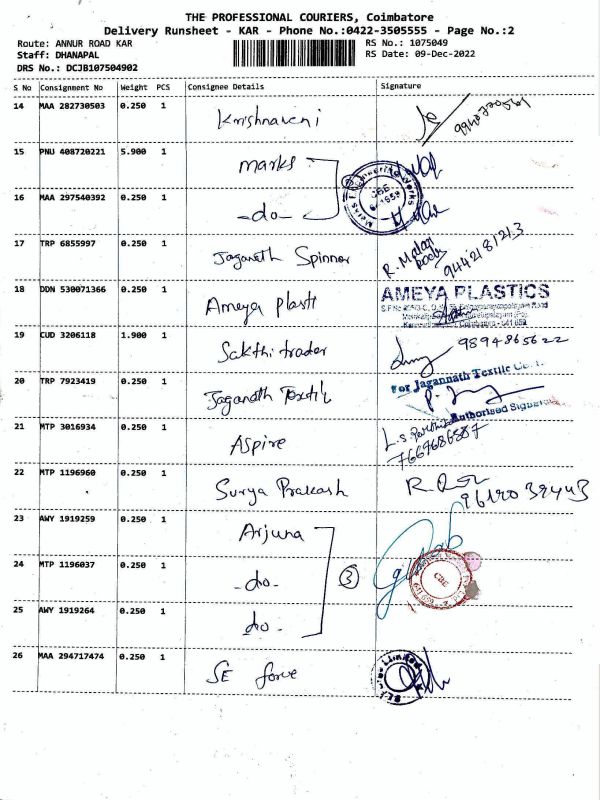 THE PROFESSIONAL COURIERS, Coimbatore
Delivery Runsheet - KAR - Phone No.:0422-3505555 - Page No.:2
Route: ANNUR ROAD KAR
RS No.: 1075049
Staff: DHANAPAL
RS Date: 09-Dec-2022
DRS No.: DCJB107504902
S No Consignment No Weight PCS Consignee Details Signature
14 MAA 282730503 0.250 1 Krishnaveni
15 PNU 408720221 5.900 1 marks
16 MAA 297540392 0.250 1 -do-
17 TRP 6855997 0.250 1 Jaganath Spinner R. Malar 9442181213
18 DDN 530071366 0.250 1 Ameya plasti AMEYA PLASTICS
19 CUD 3206118 1.900 1 Sakthi trader 9894865622
20 TRP 7923419 0.250 1 Jaganath Textile For Jagannath Textile
Authorised
21 MTP 3016934 0.250 1 Aspire L.S. 7667686587
22 MTP 1196960 0.250 1 Surya Prakash R.
23 AWY 1919259 0.250 1 Arjuna
24 MTP 1196037 0.250 1 -do- 3 CBE
25 AWY 1919264 0.250 1 do-
26 MAA 294717474 0.250 1 SE force